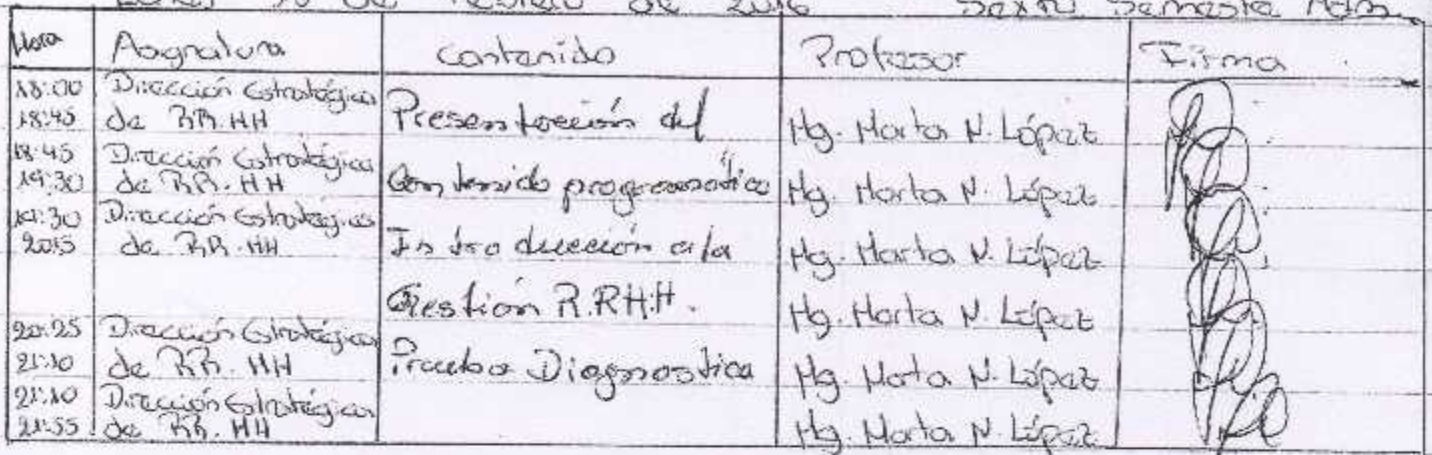 de Febrero de 2016 Sexto Semestre Adm.
Hora Asignatura Contenido Profesor Firma
18:00 Dirección Estratégica
18:45 de RR.HH Presentación del Mg. Marta N. López
18:45 Dirección Estratégica
19:30 de RR.HH Contenido programático Mg. Marta N. López
19:30 Dirección Estratégica
20:15 de RR.HH Introducción a la Mg. Marta N. López
Gestión R.RHH. Mg. Marta N. López
20:25 Dirección Estratégica
21:10 de RR.HH Prueba Diagnostica Mg. Marta N. López
21:10 Dirección Estratégica
21:55 de RR.HH Mg. Marta N. López